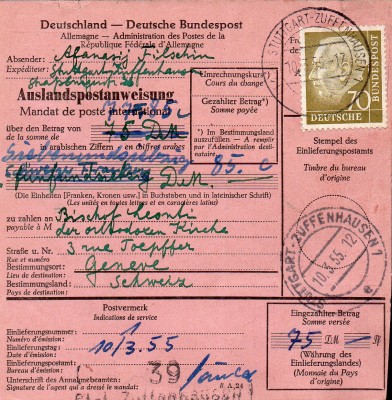 Deutschland — Deutsche Bundespost
Allemagne — Administration des Postes de la
République Fédérale d'Allemagne
Absender:
Expéditeur:
Stuttgart-Zuffenhausen
Auslandspostanweisung
Mandat de poste international
Umrechnungskurs*)
Cours du change
Gezahlter Betrag*)
Somme payée
über den Betrag von
la somme de
75 DM
in arabischen Ziffern en chiffres arabes
*) Im Bestimmungsland
auszufüllen. — A remplir
par l'Administration desti-
nataire
DM
85. c
(Die Einheiten [Franken, Kronen usw.] in Buchstaben und in lateinischer Schrift)
(Les unités en toutes lettres et en caractères latins)
zu zahlen an
payable à M
Bischof Leonti
der orthodoxen Kirche
Straße u. Nr.
Rue et numéro
3 rue Toepffer
Bestimmungsort:
Lieu de destination:
Geneve
Bestimmungsland:
Pays de destination:
Schweiz
STUTTGART-ZUFFENHAUSEN
70
Stempel des
Einlieferungspostamts
Timbre du bureau
d'origine
STUTTGART-ZUFFENHAUSEN 1
10.3.55. 12
a
Postvermerk
Indications de service
Einlieferungsnummer:
Numéro d'émission:
Einlieferungstag:
Date d'émission:
10/3.55
Einlieferungspostamt:
Bureau d'émission:
39
Unterschrift des Annahmebeamten:
Signature de l'agent qui a dressé le mandat:
Zuffenhausen 1
Eingezahlter Betrag
Somme versée
75 DM — Pf
(Währung des
Einlieferungslandes)
(Monnaie du Pays
d'origine)